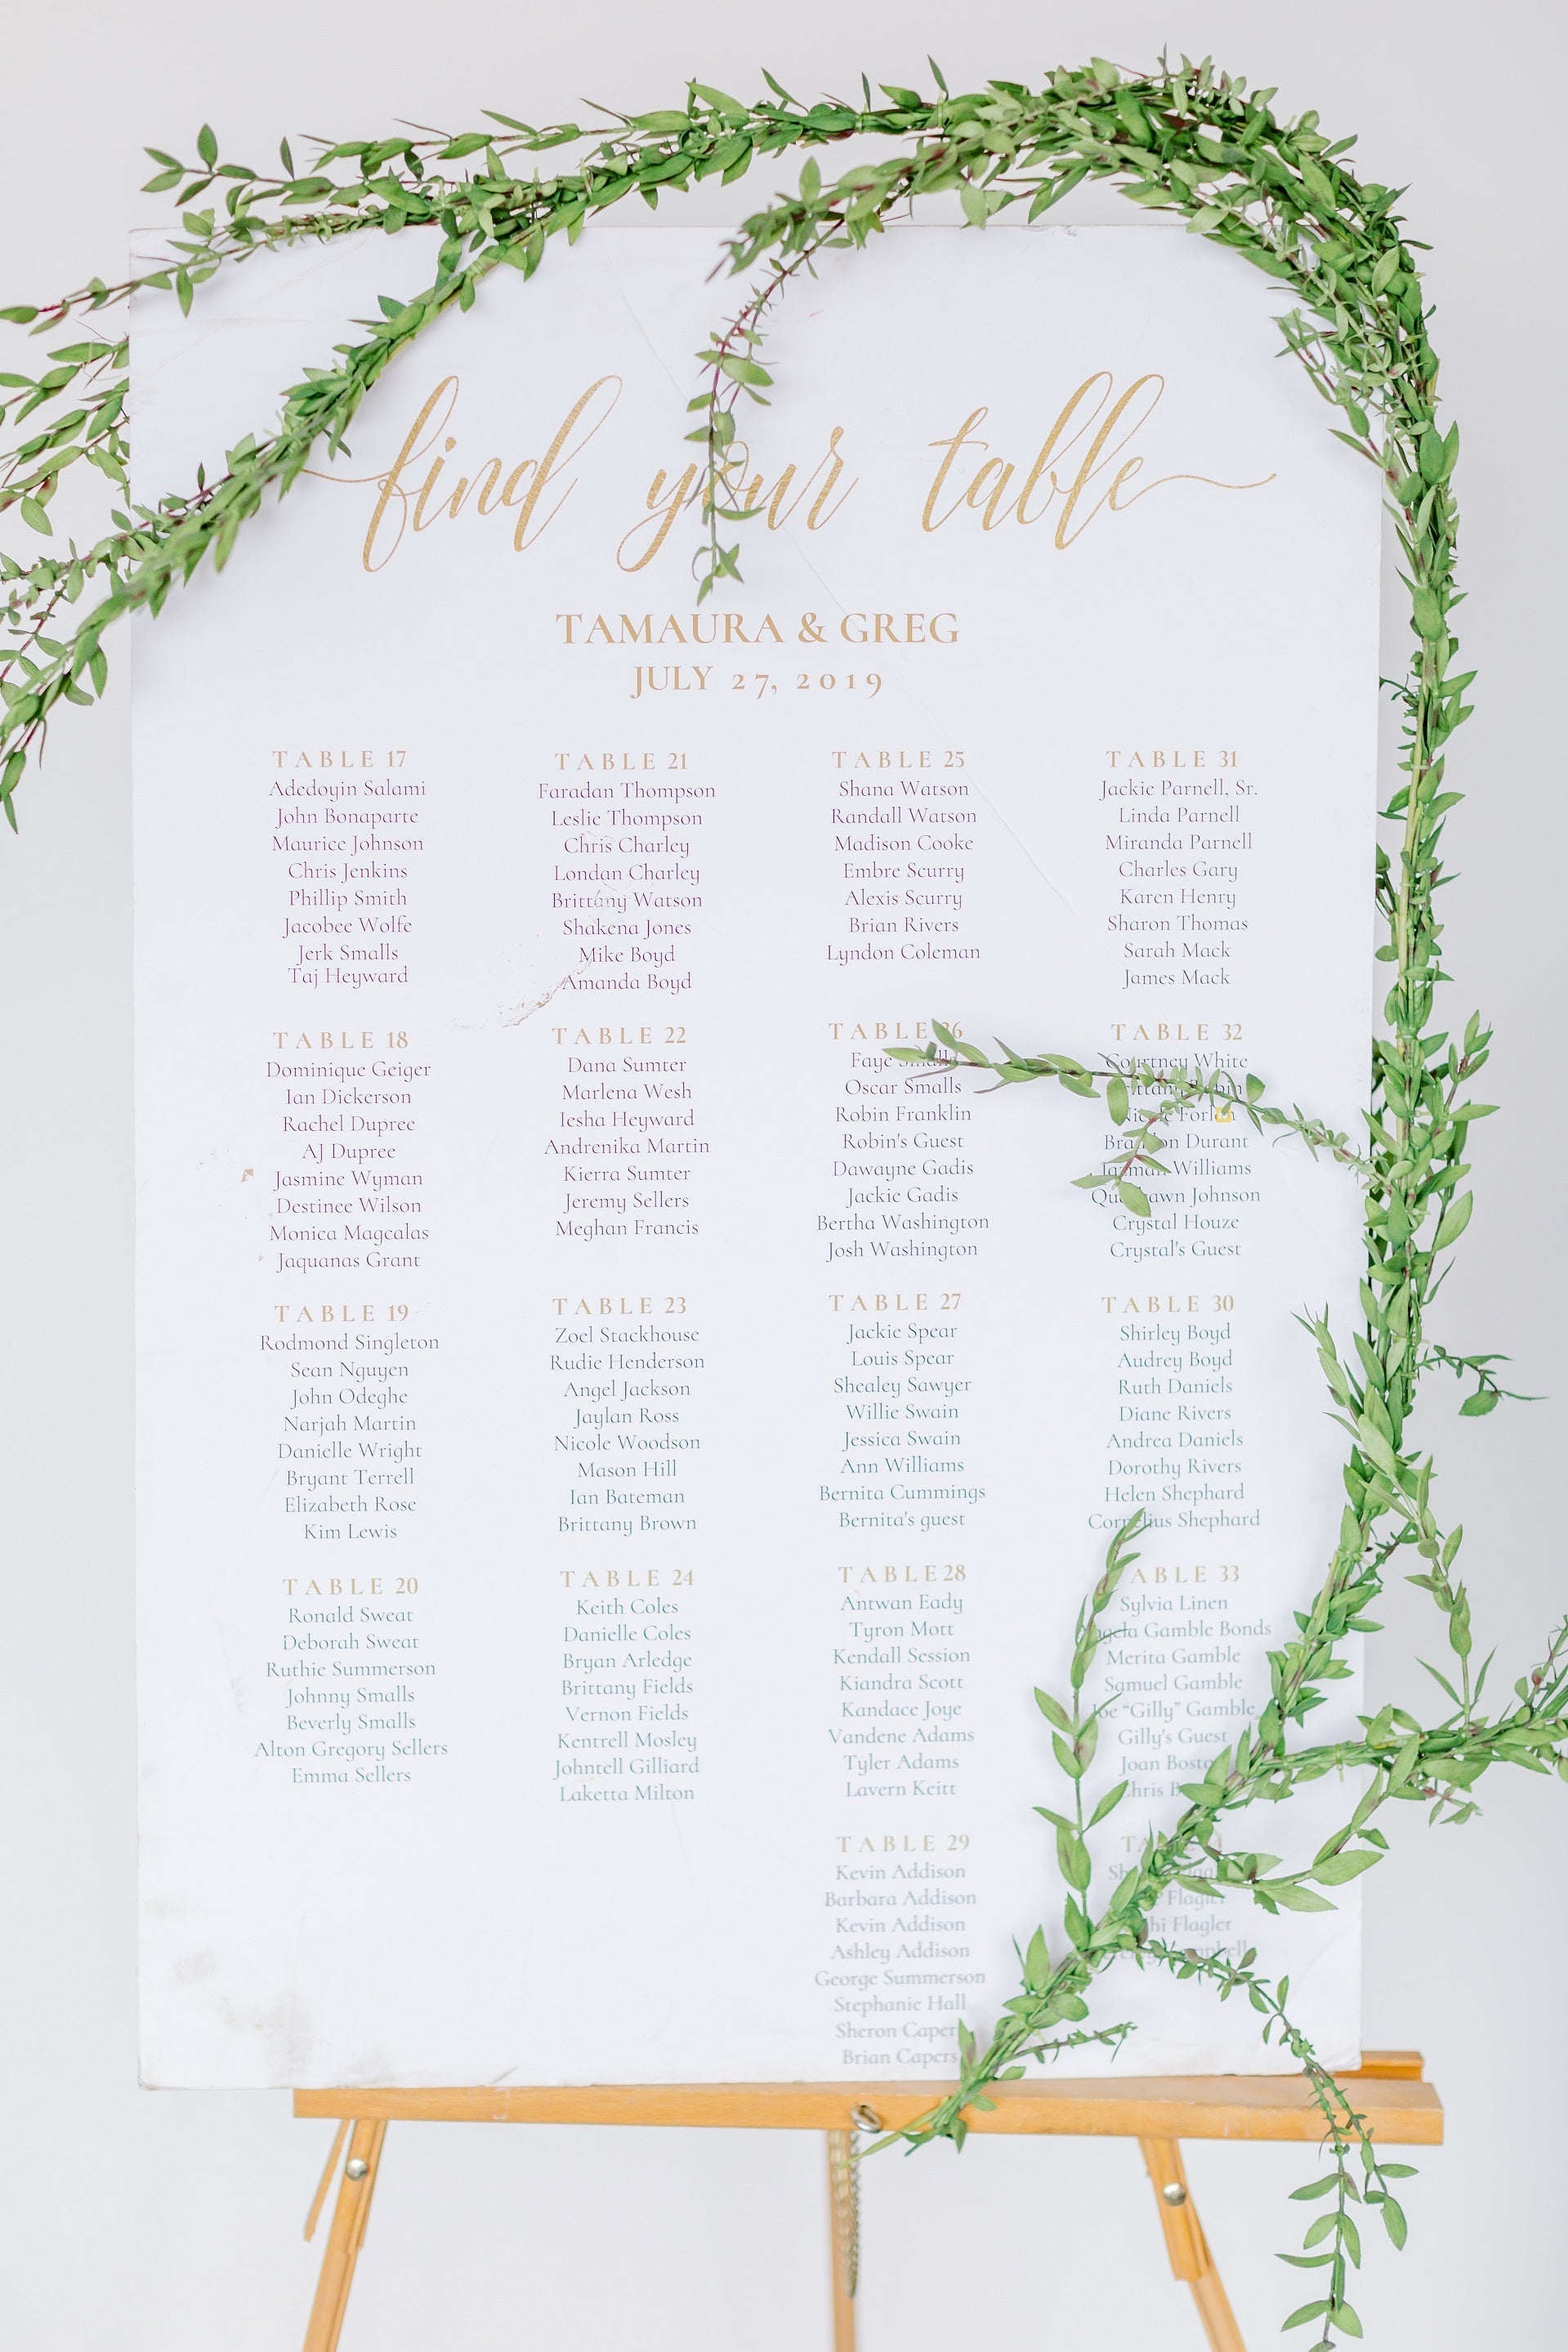 find your table
TAMAURA & GREG
JULY 27, 2019
TABLE 17
Adedoyin Salami
John Bonaparte
Maurice Johnson
Chris Jenkins
Phillip Smith
Jacobee Wolfe
Jerk Smalls
Taj Heyward
TABLE 18
Dominique Geiger
Ian Dickerson
Rachel Dupree
AJ Dupree
Jasmine Wyman
Destinee Wilson
Monica Magcalas
Jaquanas Grant
TABLE 19
Rodmond Singleton
Sean Nguyen
John Odeghe
Narjah Martin
Danielle Wright
Bryant Terrell
Elizabeth Rose
Kim Lewis
TABLE 20
Ronald Sweat
Deborah Sweat
Ruthie Summerson
Johnny Smalls
Beverly Smalls
Alton Gregory Sellers
Emma Sellers
TABLE 21
Faradan Thompson
Leslie Thompson
Chris Charley
Londan Charley
Brittany Watson
Shakena Jones
Mike Boyd
Amanda Boyd
TABLE 22
Dana Sumter
Marlena Wesh
Iesha Heyward
Andrenika Martin
Kierra Sumter
Jeremy Sellers
Meghan Francis
TABLE 23
Zoel Stackhouse
Rudie Henderson
Angel Jackson
Jaylan Ross
Nicole Woodson
Mason Hill
Ian Bateman
Brittany Brown
TABLE 24
Keith Coles
Danielle Coles
Bryan Arledge
Brittany Fields
Vernon Fields
Kentrell Mosley
Johntell Gilliard
Laketta Milton
TABLE 25
Shana Watson
Randall Watson
Madison Cooke
Embre Scurry
Alexis Scurry
Brian Rivers
Lyndon Coleman
TABLE 26
Faye Smalls
Oscar Smalls
Robin Franklin
Robin's Guest
Dawayne Gadis
Jackie Gadis
Bertha Washington
Josh Washington
TABLE 27
Jackie Spear
Louis Spear
Shealey Sawyer
Willie Swain
Jessica Swain
Ann Williams
Bernita Cummings
Bernita's guest
TABLE 28
Antwan Eady
Tyron Mott
Kendall Session
Kiandra Scott
Kandace Joye
Vandene Adams
Tyler Adams
Lavern Keitt
TABLE 29
Kevin Addison
Barbara Addison
Kevin Addison
Ashley Addison
George Summerson
Stephanie Hall
Sheron Capers
Brian Capers
TABLE 31
Jackie Parnell, Sr.
Linda Parnell
Miranda Parnell
Charles Gary
Karen Henry
Sharon Thomas
Sarah Mack
James Mack
TABLE 32
Courtney White
Nicole
Brandon Durant
Williams
Johnson
Crystal Houze
Crystal's Guest
TABLE 30
Shirley Boyd
Audrey Boyd
Ruth Daniels
Diane Rivers
Andrea Daniels
Dorothy Rivers
Helen Shephard
Cornelius Shephard
TABLE 33
Sylvia Linen
Angela Gamble Bonds
Merita Gamble
Samuel Gamble
Joe “Gilly” Gamble
Gilly's Guest
Joan
Chris
Flagler
Flagler